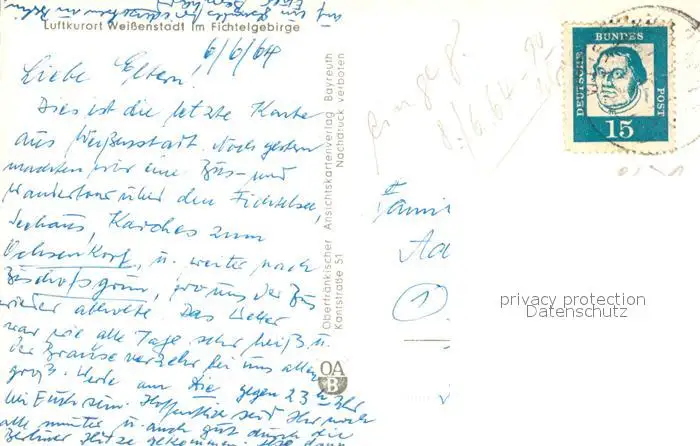 Luftkurort Weißenstadt im Fichtelgebirge
6/6/64
Liebe Eltern!
Dies ist die letzte Karte
aus Weißenstadt. Noch gestern
machten wir eine Bus- und
Wandertour über den Fichtelsee,
Seehaus, Karches zum
Ochsenkopf, u. weiter nach
Bischofsgrün, wo uns der Bus
wieder abholte. Das Wetter
war wie alle Tage sehr heiß u.
der Brauseverzehr bei uns allen
groß. Werde am gegen 23 Uhr
bei Euch sein. Hoffentlich seid Ihr noch
alle munter u. auch gut durch die
Berliner Hitze gekommen.
Oberfränkischer Ansichtskartenverlag Bayreuth
Kantstraße 51 Nachdruck verboten
OA
B
eingeg.
8./6.64
DEUTSCHE
BUNDES
POST
15
Fami
1
privacy protection
Datenschutz